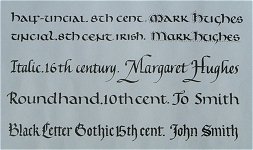 half-uncial. 8th cent. Mark Hughes
uncial. 8th cent. Irish. Mark Hughes
Italic. 16th century. Margaret Hughes
Roundhand. 10th cent. Jo Smith
Black Letter Gothic 15th cent. John Smith